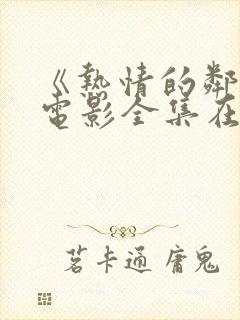 《熱情的鄰
電影全集在
茗卡通 庸鬼